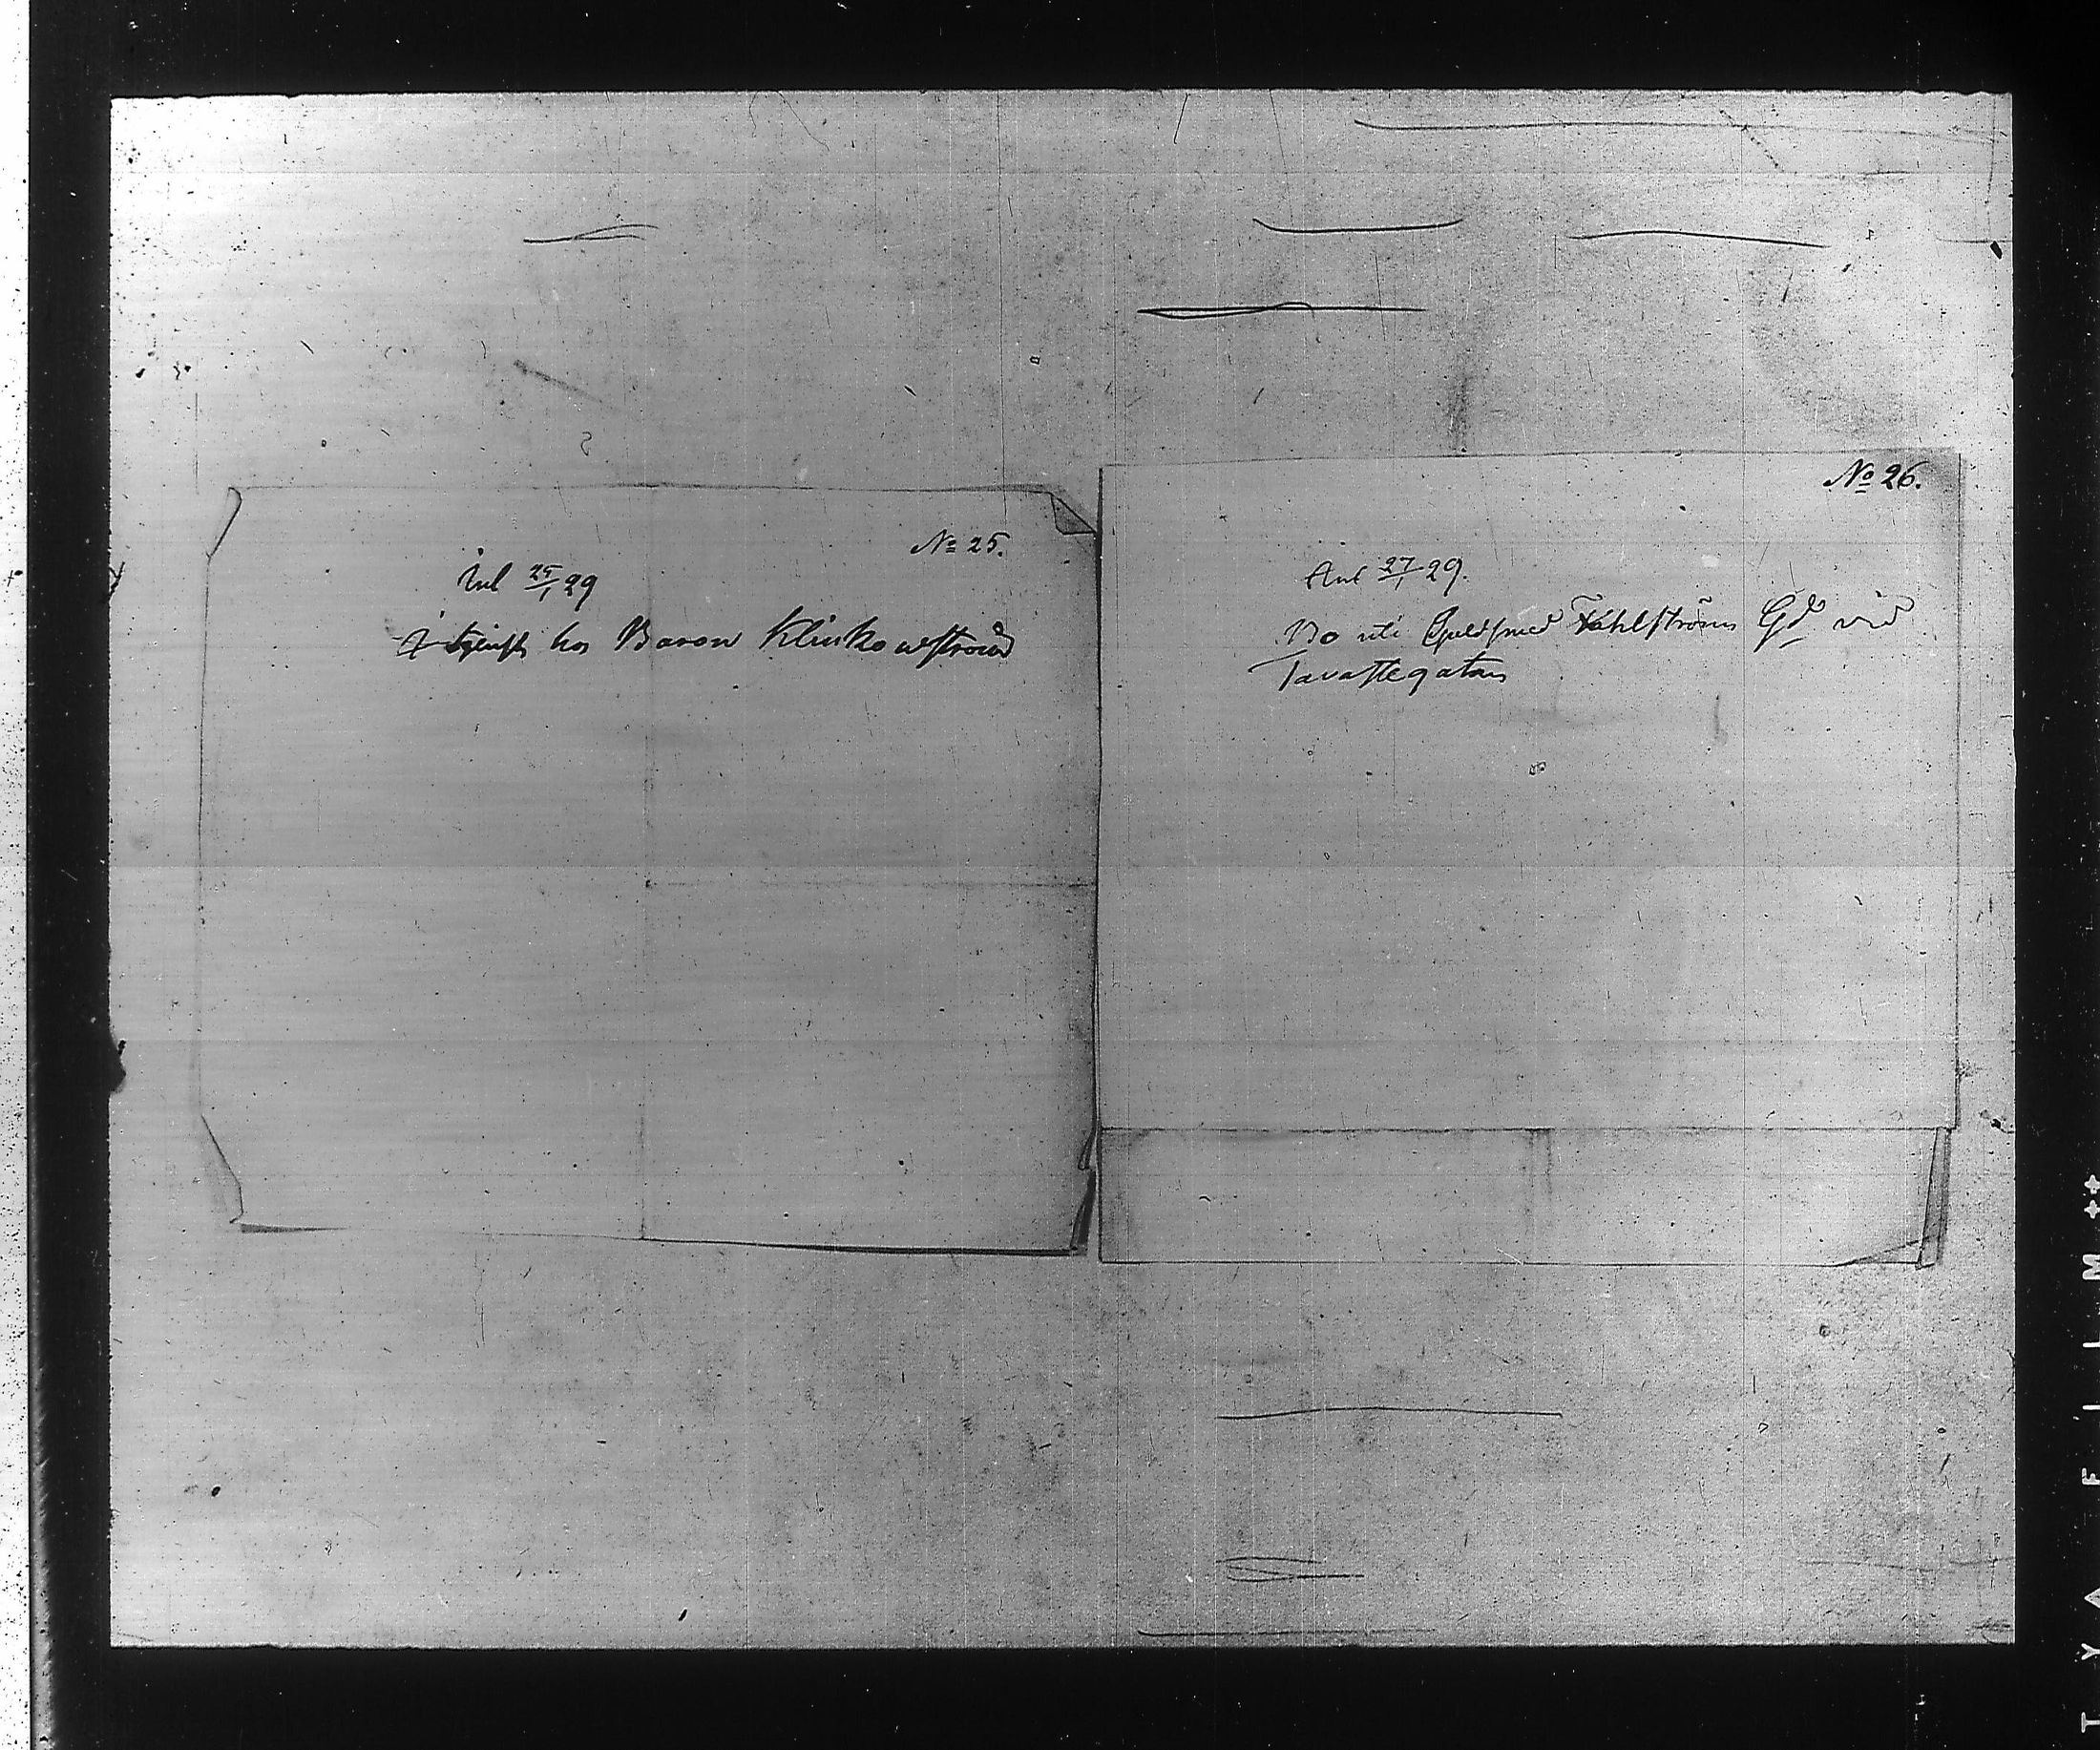 No 25.
Inl 25/1 29
i tjenst hos Baron Klinkowström
No 26.
Anl 27/1 29.
Bo uti Guldsmed Fahlströms Gd vid
Tavastegatan
FILM